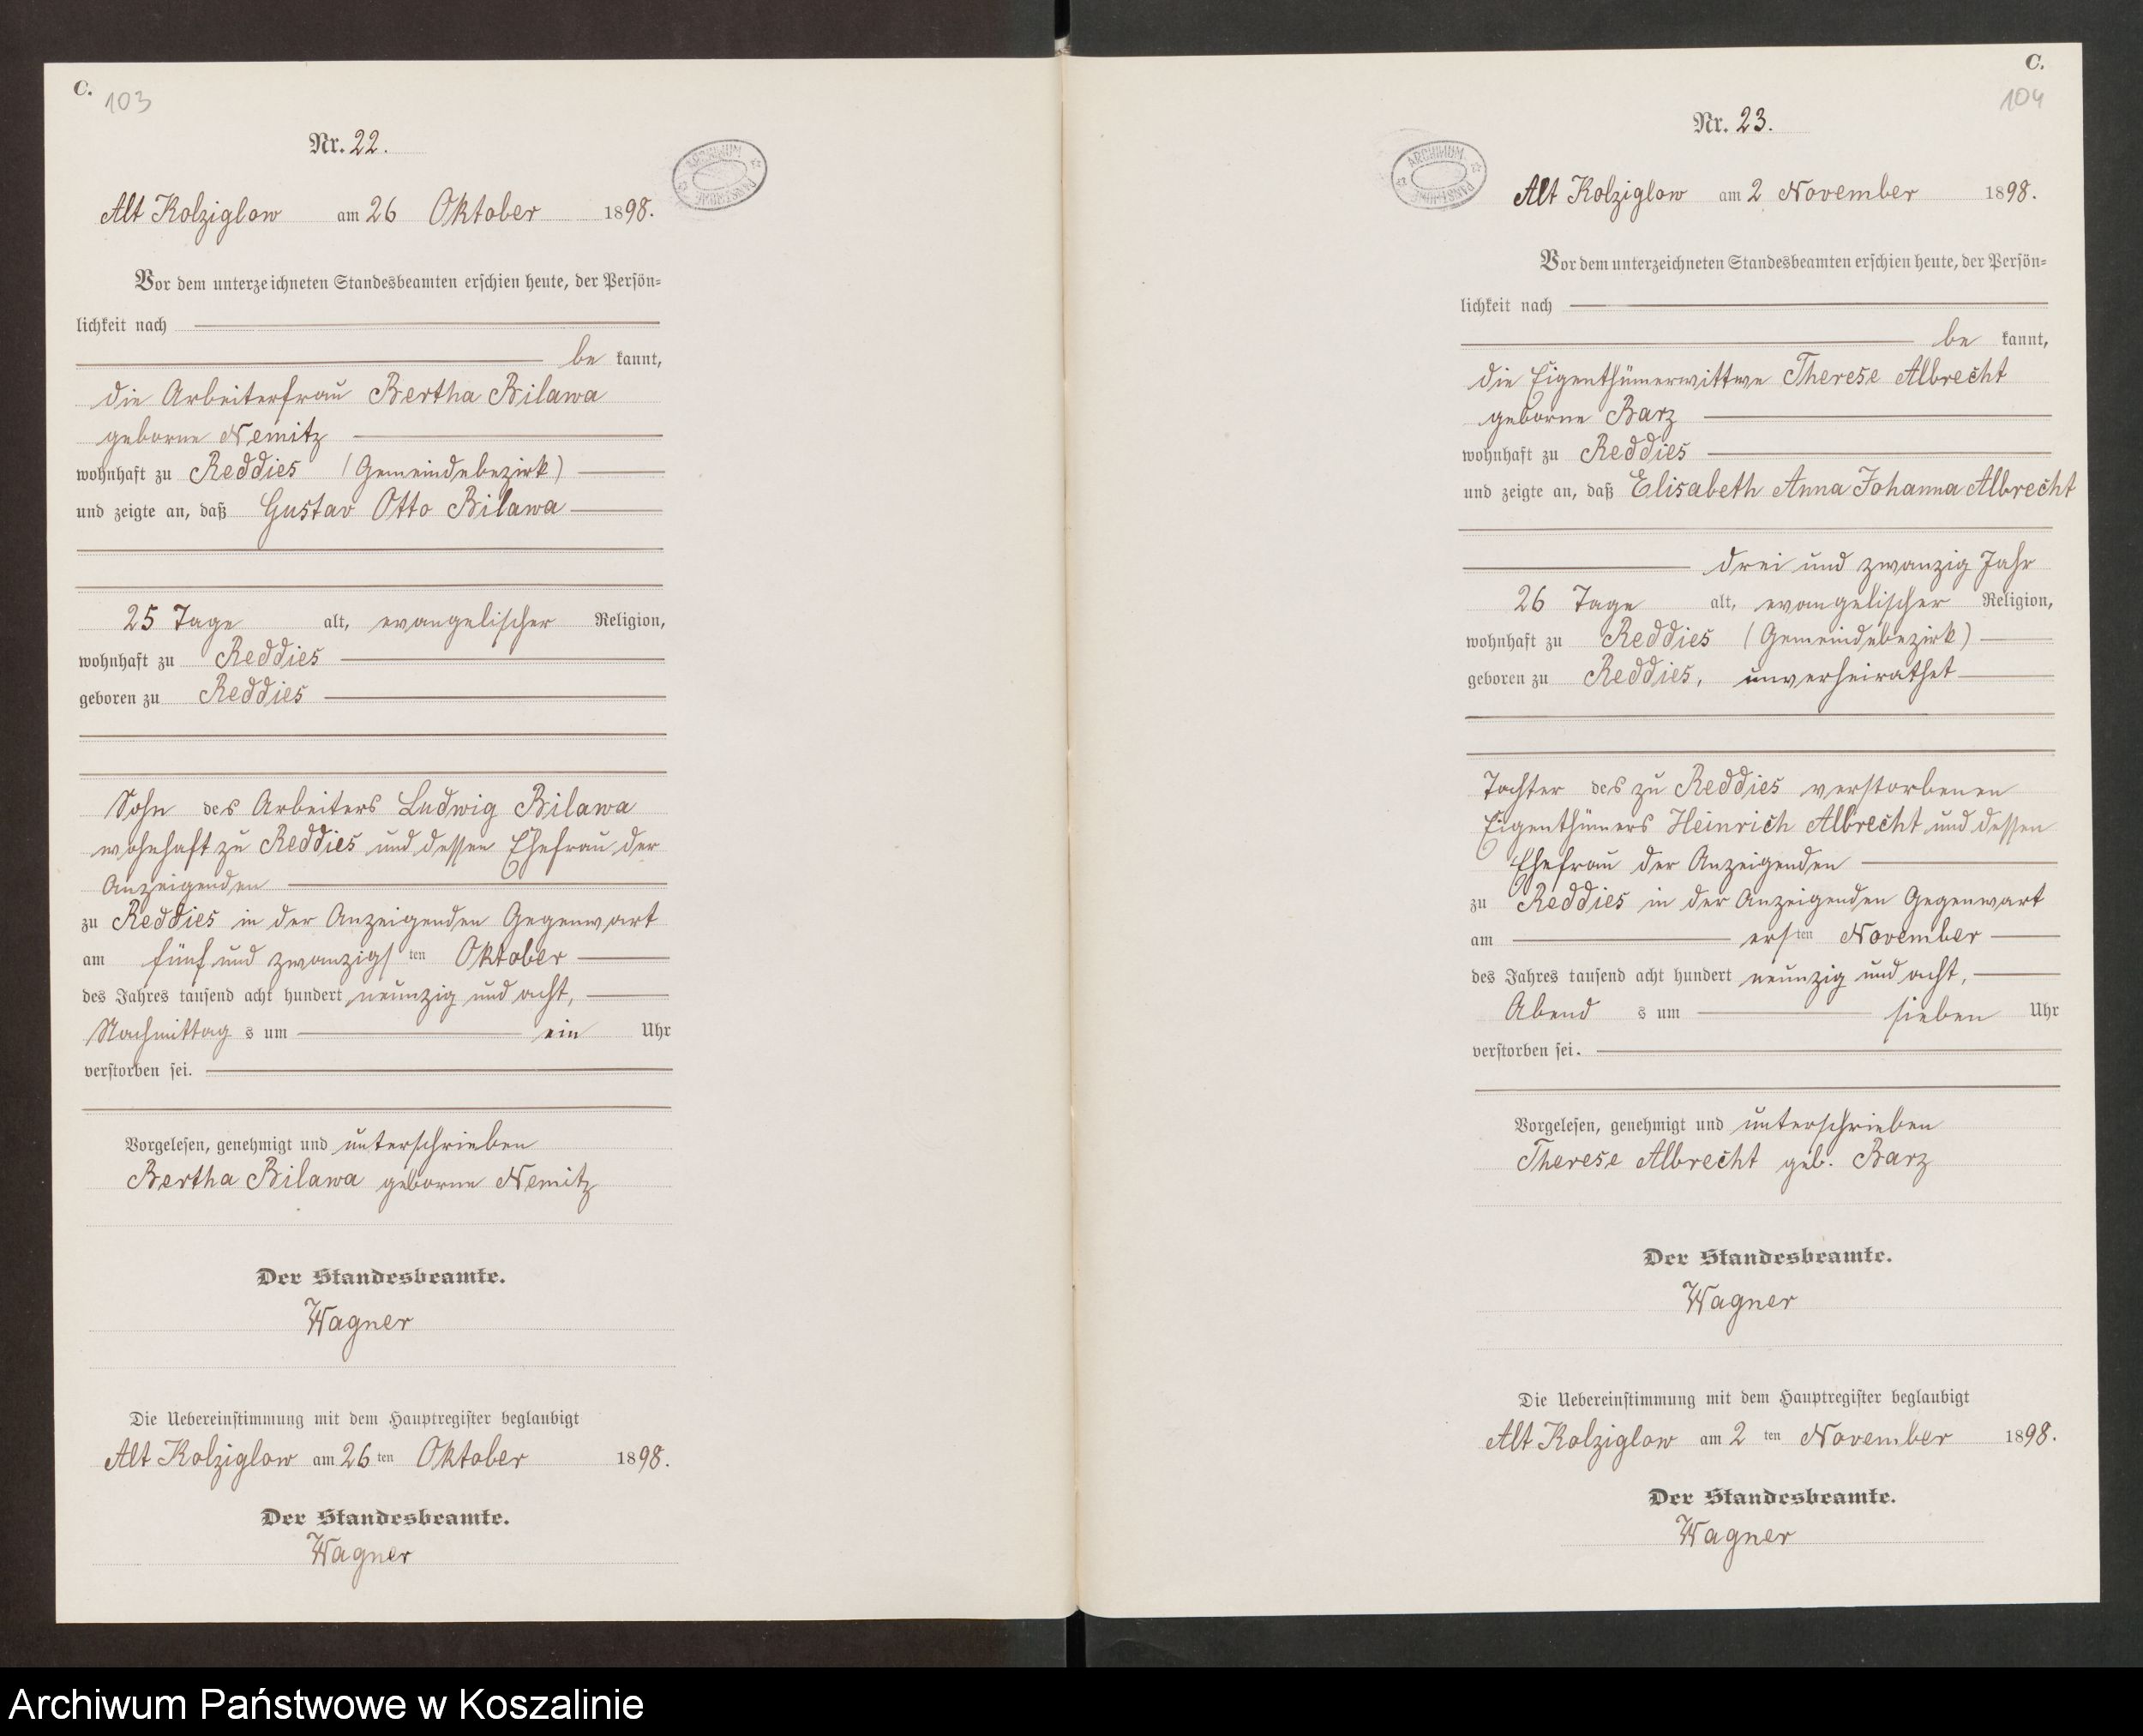 C.
103
Nr. 22.
ARCHIWUM PAŃSTWOWE
Alt Kolziglow am 26 Oktober 1898.
Vor dem unterzeichneten Standesbeamten erschien heute, der Persön-
lichkeit nach
be kannt,
die Arbeiterfrau Bertha Bilawa
geborne Nemitz
wohnhaft zu Reddies (Gemeindebezirk)
und zeigte an, daß Gustav Otto Bilawa
25 Tage alt, evangelischer Religion,
wohnhaft zu Reddies
geboren zu Reddies
Sohn des Arbeiters Ludwig Bilawa
wohnhaft zu Reddies und dessen Ehefrau der
Anzeigenden
zu Reddies in der Anzeigenden Gegenwart
am fünf und zwanzigsten Oktober
des Jahres tausend acht hundert neunzig und acht,
Nachmittags um ein Uhr
verstorben sei.
Vorgelesen, genehmigt und unterschrieben
Bertha Bilawa geborne Nemitz
Der Standesbeamte.
Wagner
Die Uebereinstimmung mit dem Hauptregister beglaubigt
Alt Kolziglow am 26 ten Oktober 1898.
Der Standesbeamte.
Wagner
C.
104
Nr. 23.
ARCHIWUM PAŃSTWOWE
Alt Kolziglow am 2 November 1898.
Vor dem unterzeichneten Standesbeamten erschien heute, der Persön-
lichkeit nach
be kannt,
die Eigenthümerwittwe Therese Albrecht
geborne Barz
wohnhaft zu Reddies
und zeigte an, daß Elisabeth Anna Johanna Albrecht
drei und zwanzig Jahr
26 Tage alt, evangelischer Religion,
wohnhaft zu Reddies (Gemeindebezirk)
geboren zu Reddies, unverheirathet
Tochter des zu Reddies verstorbenen
Eigenthümers Heinrich Albrecht und dessen
Ehefrau der Anzeigenden
zu Reddies in der Anzeigenden Gegenwart
am ersten November
des Jahres tausend acht hundert neunzig und acht,
Abends um sieben Uhr
verstorben sei.
Vorgelesen, genehmigt und unterschrieben
Therese Albrecht geb. Barz
Der Standesbeamte.
Wagner
Die Uebereinstimmung mit dem Hauptregister beglaubigt
Alt Kolziglow am 2 ten November 1898.
Der Standesbeamte.
Wagner
Archiwum Państwowe w Koszalinie